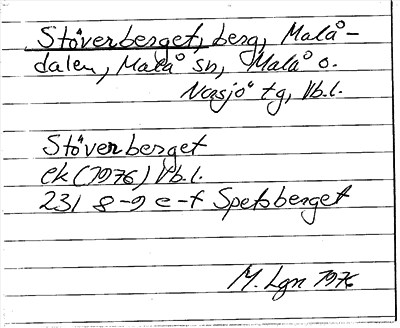 Stöverberget, berg, Malå-
dalen, Malå sn, Malå o.
Norsjö tg, Vb.l.
Stöverberget
ek (1976) Vb.l.
231 8-9 e-f Spetsberget
M. Lgn 1976